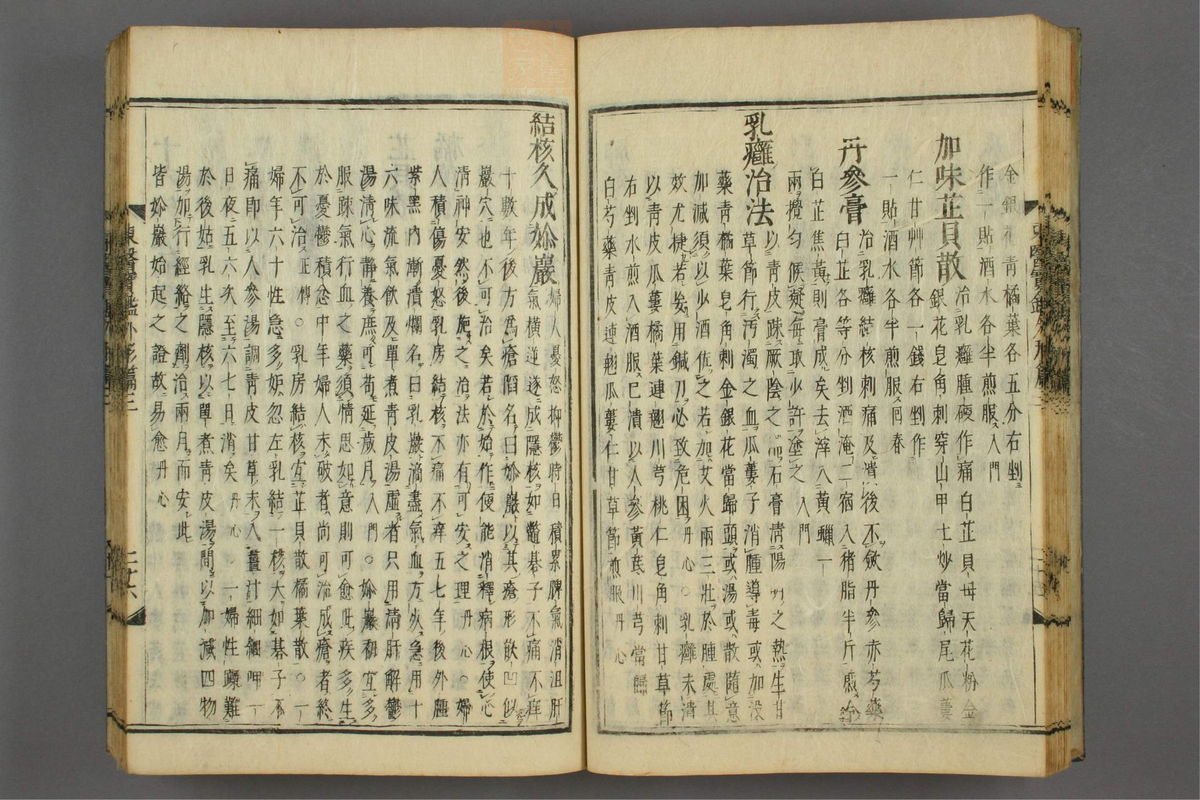 金銀花青橘葉各五分右剉
作一貼酒水各半煎服入門
加味芷貝散 治乳癰腫硬作痛白芷貝母天花粉金
銀花皂角刺穿山甲土炒當歸尾瓜蔞
仁甘艸節各一錢右剉作
一貼酒水各半煎服回春
丹參膏 治乳癰結核刺痛及潰後不斂丹參赤芍藥
白芷各等分剉酒淹二宿入猪脂半斤煎令
白芷焦黃則膏成矣去滓入黃蠟一
兩攪勻候凝每取少許塗之入門
乳癰治法 以青皮踈厥陰之滯石膏淸陽明之熱生甘
草節行汚濁之血瓜蔞子消腫導毒或加沒
藥青橘葉皂角刺金銀花當歸頭或湯或散隨意
加減須以少酒佐之若加艾火兩三壯於腫處其
效尤捷若矣用鍼刀必致危困丹心○乳癰未潰
以青皮瓜蔞橘葉連翹川芎桃仁皂角刺甘草節
右剉水煎入酒服已潰以人參黃芪川芎當歸
白芍藥青皮連翹瓜蔞仁甘草節煎服丹心
結核久成妳巖 婦人憂怒抑鬱時日積累脾氣消沮肝
氣橫逆遂成隱核如鱉碁子不痛不痒
十數年後方爲瘡陷名曰妳巖以其瘡形嵌凹似
巖穴也不可治矣若於始作便能消釋病根使心
淸神安然後施之治法亦有可安之理丹心○婦
人積傷憂怒乳房結核不痛不痒五七年後外腫
紫黑內漸潰爛名曰乳巖滴盡氣血方死急用十
六味流氣飮及單煮青皮湯虛者只用淸肝解鬱
湯淸心靜養庶可苟延歲月入門○妳巖初宜多
服踈氣行血之藥須情思如意則可愈此疾多生
於憂鬱積忿中年婦人未破者尚可治成瘡者終
不可治正傳○乳房結核宜芷貝散橘葉散○一
婦年六十性急多妬忽左乳結一核大如碁子不
痛即以人參湯調青皮甘草末入薑汁細細呷一
日夜五六次至六七日消矣丹心○一婦性躁難
於後姑乳生隱核以單煮青皮湯間以加減四物
湯加行經絡之劑治兩月而安此
皆妳巖始起之證故易愈丹心
東醫寶鑑外形篇三
二十六